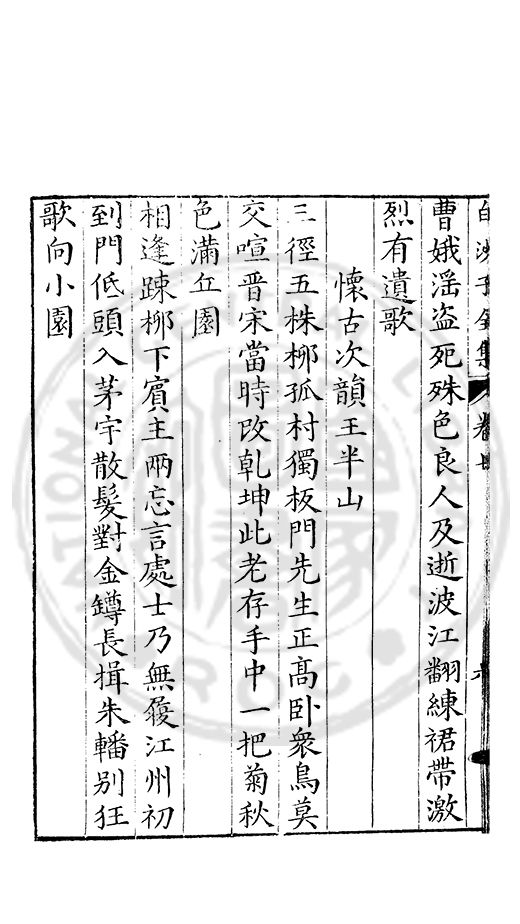 白沙子全集 卷
曹娥滛盗死殊色良人及逝波江翻練裙帶激
烈有遺歌
懷古次韻王半山
三徑五株栁孤村獨板門先生正髙卧衆鳥莫
交喧晋宋當時改乹坤此老存手中一把菊秋
色滿丘園
相逢踈栁下賓主兩忘言處士乃無屐江州初
到門低頭入茅宇散髮對金罇長揖朱轓别狂
歌向小園